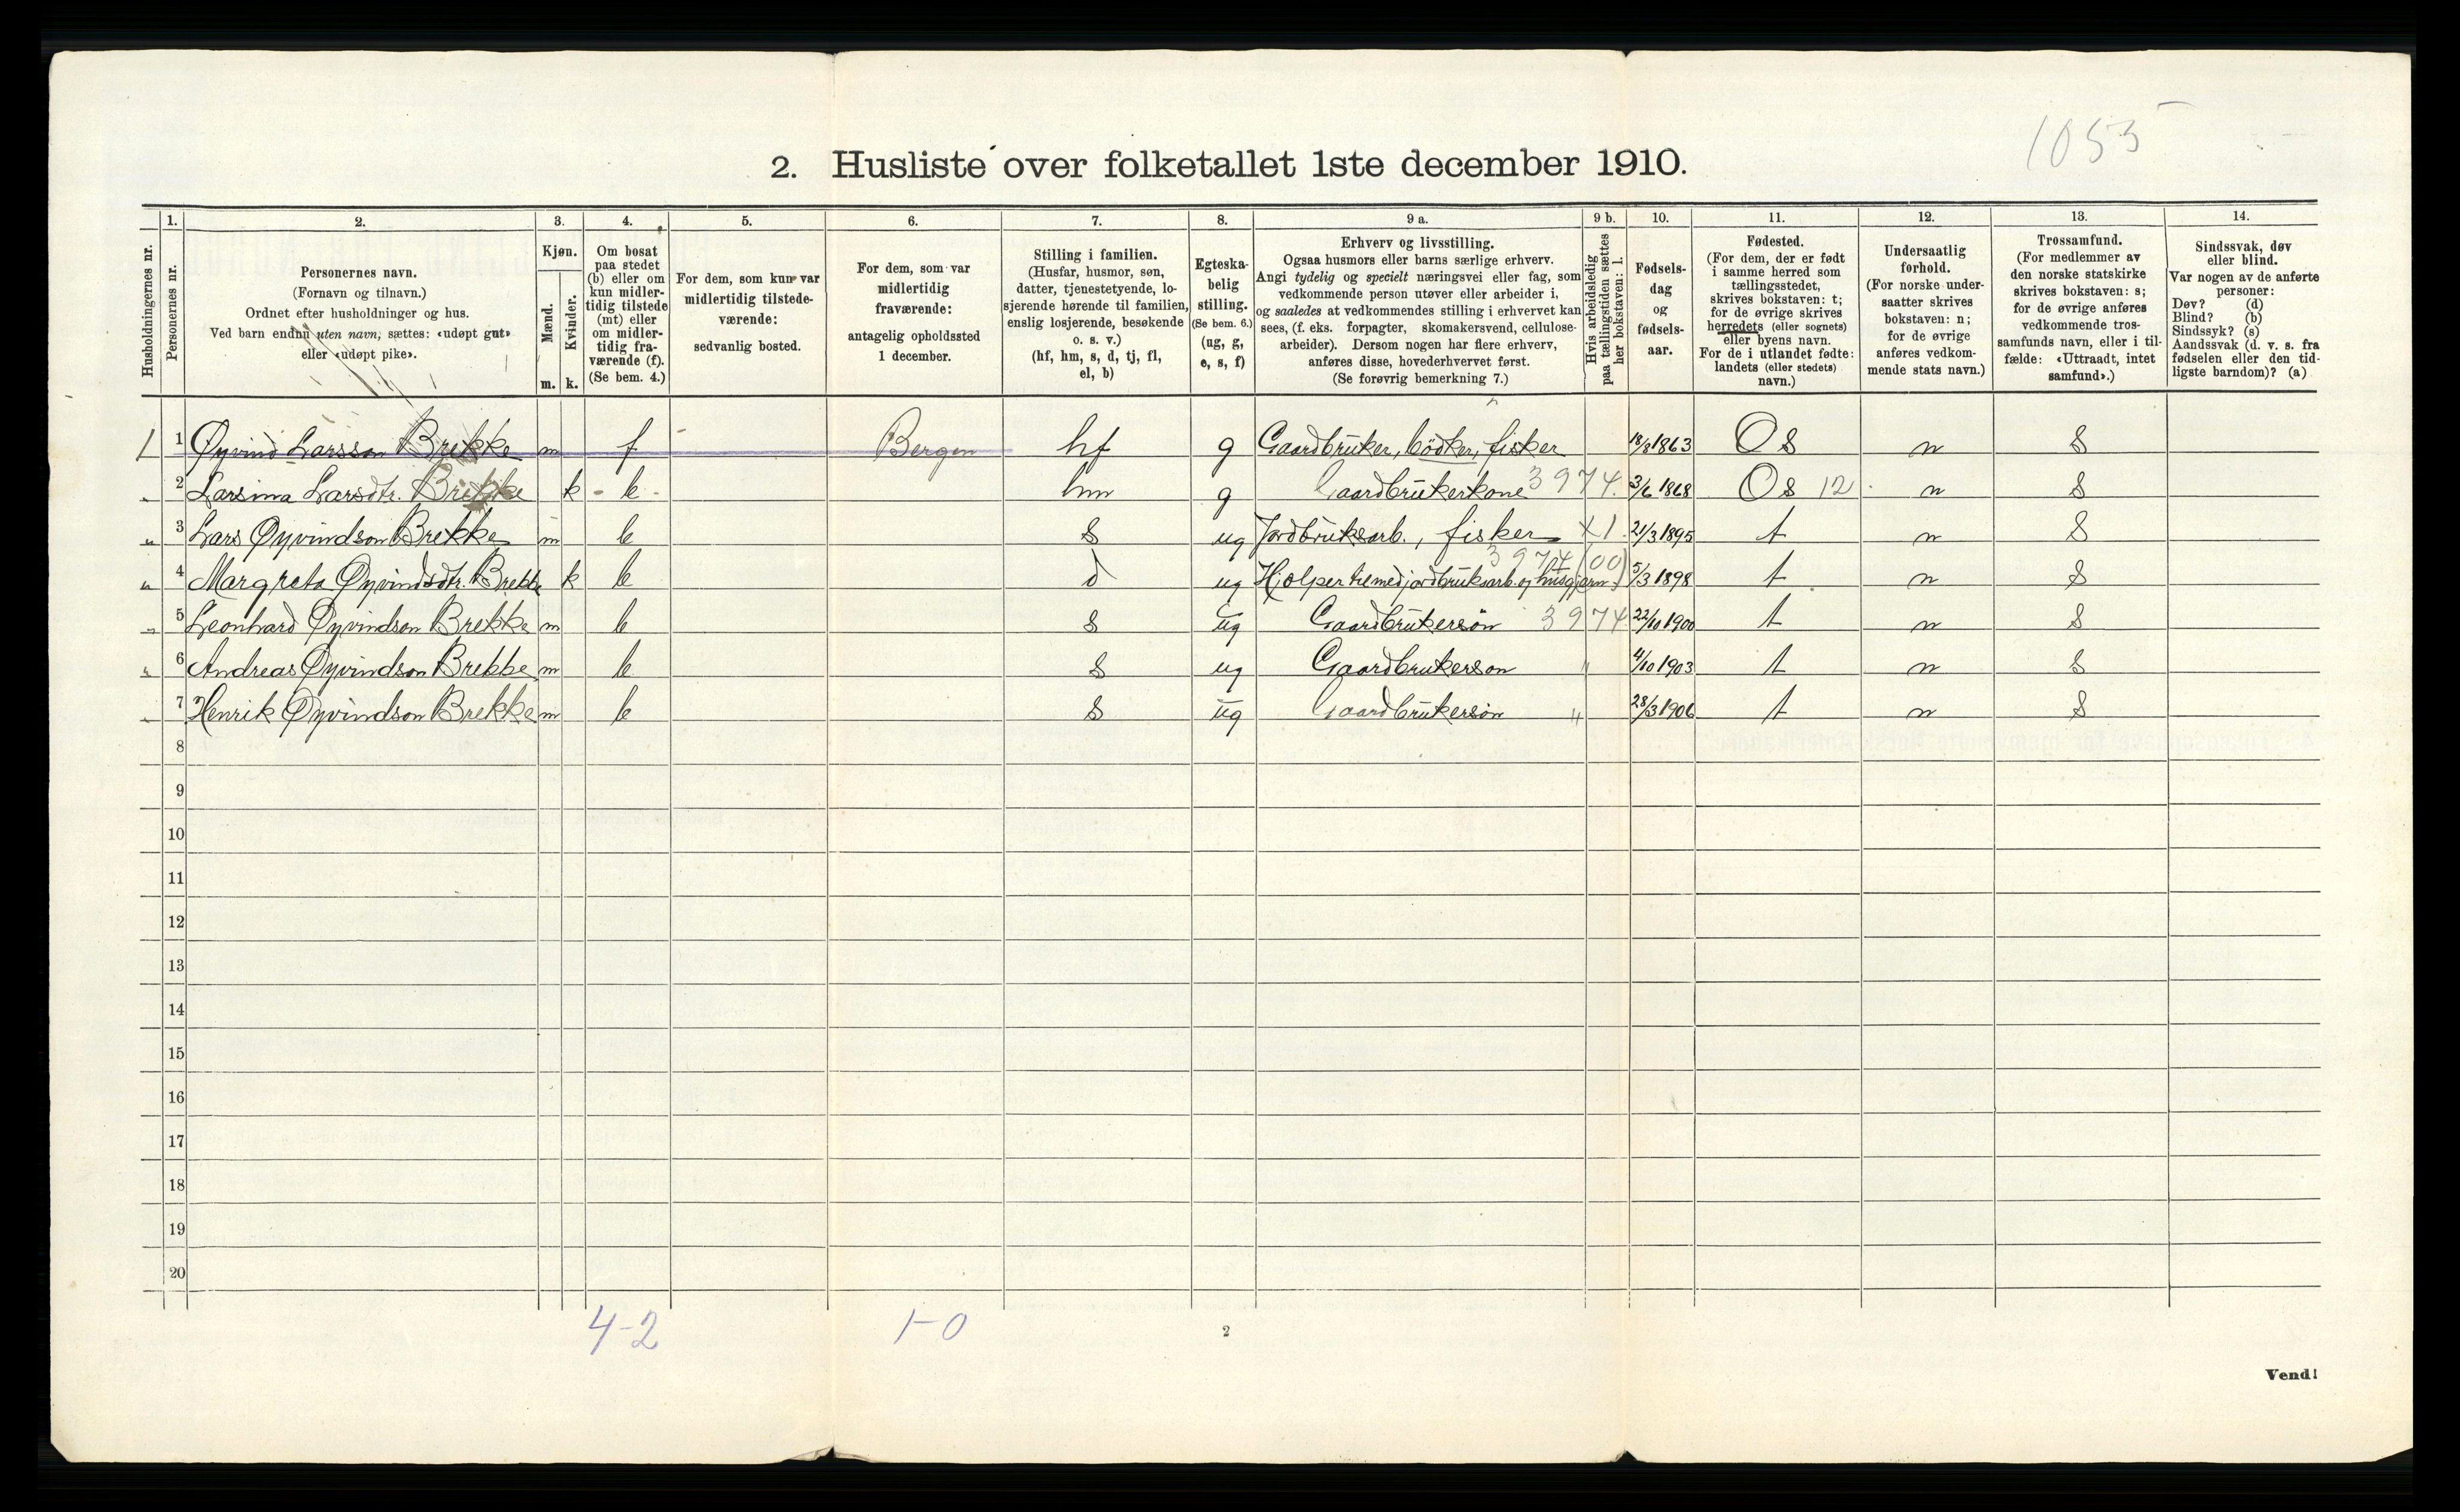 1055
2. Husliste over folketallet 1ste december 1910.
Husholdningernes nr.
1.
Personernes nr.
2.
Personernes navn.
(Fornavn og tilnavn.)
Ordnet efter husholdninger og hus.
Ved barn endnu uten navn, sættes: «udøpt gut»
eller «udøpt pike».
3.
Kjøn.
Mænd.
Kvinder.
m. k.
4.
Om bosat
paa stedet
(b) eller om
kun midler-
tidig tilstede
(mt) eller
om midler-
tidig fra-
værende (f).
(Se bem. 4.)
5.
For dem, som kun var
midlertidig tilstede-
værende:
sedvanlig bosted.
6.
For dem, som var
midlertidig
fraværende:
antagelig opholdssted
1 december.
7.
Stilling i familien.
(Husfar, husmor, søn,
datter, tjenestetyende, lo-
sjerende hørende til familien,
enslig losjerende, besøkende
o. s. v.)
(hf, hm, s, d, tj, fl,
el, b)
8.
Egteska-
belig
stilling.
(Se bem. 6.)
(ug, g,
e, s, f)
9 a.
Erhverv og livsstilling.
Ogsaa husmors eller barns særlige erhverv.
Angi tydelig og specielt næringsvei eller fag, som
vedkommende person utøver eller arbeider i,
og saaledes at vedkommendes stilling i erhvervet kan
sees, (f. eks. forpagter, skomakersvend, cellulose-
arbeider). Dersom nogen har flere erhverv,
anføres disse, hovederhvervet først.
(Se forøvrig bemerkning 7.)
9 b.
Hvis arbeidsledig
paa tællingstiden sættes
her bokstaven: l.
10.
Fødsels-
dag
og
fødsels-
aar.
11.
Fødested.
(For dem, der er født
i samme herred som
tællingsstedet,
skrives bokstaven: t;
for de øvrige skrives
herredets (eller sognets)
eller byens navn.
For de i utlandet fødte:
landets (eller stedets)
navn.)
12.
Undersaatlig
forhold.
(For norske under-
saatter skrives
bokstaven: n;
for de øvrige
anføres vedkom-
mende stats navn.)
13.
Trossamfund.
(For medlemmer av
den norske statskirke
skrives bokstaven: s;
for de øvrige anføres
vedkommende tros-
samfunds navn, eller i til-
fælde: «Uttraadt, intet
samfund».)
14.
Sindssvak, døv
eller blind.
Var nogen av de anførte
personer:
Døv? (d)
Blind? (b)
Sindssyk? (s)
Aandssvak (d. v. s. fra
fødselen eller den tid-
ligste barndom)? (a)
1 1 Øyvind Larsson Brekke m f Bergen hf g Gaardbruker, bödker, fisker 18/8 1863 Os n s
" 2 Larsina Larsdtr. Brekke k b hm g Gaardbrukerkone 3974. 3/6 1868 Os 12 n s
" 3 Lars Øyvindson Brekke m b s ug Jordbruksarb., fisker X1. 21/3 1895 t n s
" 4 Margreta Øyvindsdtr. Brekke k b d ug Hjelper til med jordbruksarb. og husgjern. 3974 (00) 5/3 1898 t n s
" 5 Leonhard Øyvindson Brekke m b s ug Gaardbrukersön 3974. 22/10 1900 t n s
" 6 Andreas Øyvindson Brekke m b s ug Gaardbrukerson " 4/10 1903 t n s
" 7 Henrik Øyvindson Brekke m b s ug Gaardbrukersön " 28/3 1906 t n s
8
9
10
11
12
13
14
15
16
17
18
19
20
4-2 1-0
2
Vend!